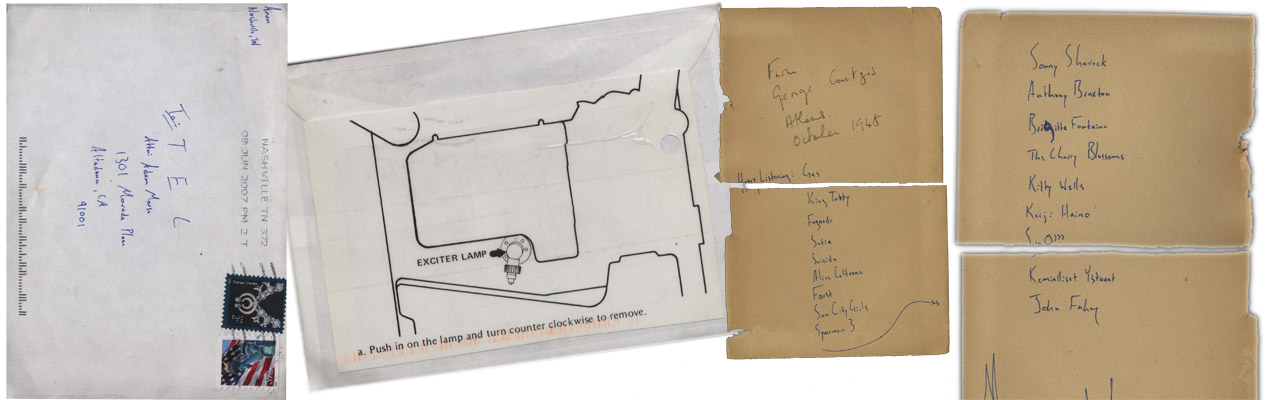 Nashville, TN
NASHVILLE TN 372
09 JUN 2007 PM 2 T
T E L
Attn: Adam Morse
1301 Morada Place
Altadena, CA
91001
EXCITER LAMP
a. Push in on the lamp and turn counter clockwise to remove.
From
George
Athens.
October 1948
Heavy Listening: Gas
King Tubby
Fugazi
Satie
Suicide
Alice Coltrane
Faust
Sun City Girls
Spacemen 3
Sonny Sharrock
Anthony Braxton
Brigitte Fontaine
The Cherry Blossoms
Kitty Wells
Keiji Haino
Sun O)))
Kemialliset Ystavat
John Fahey